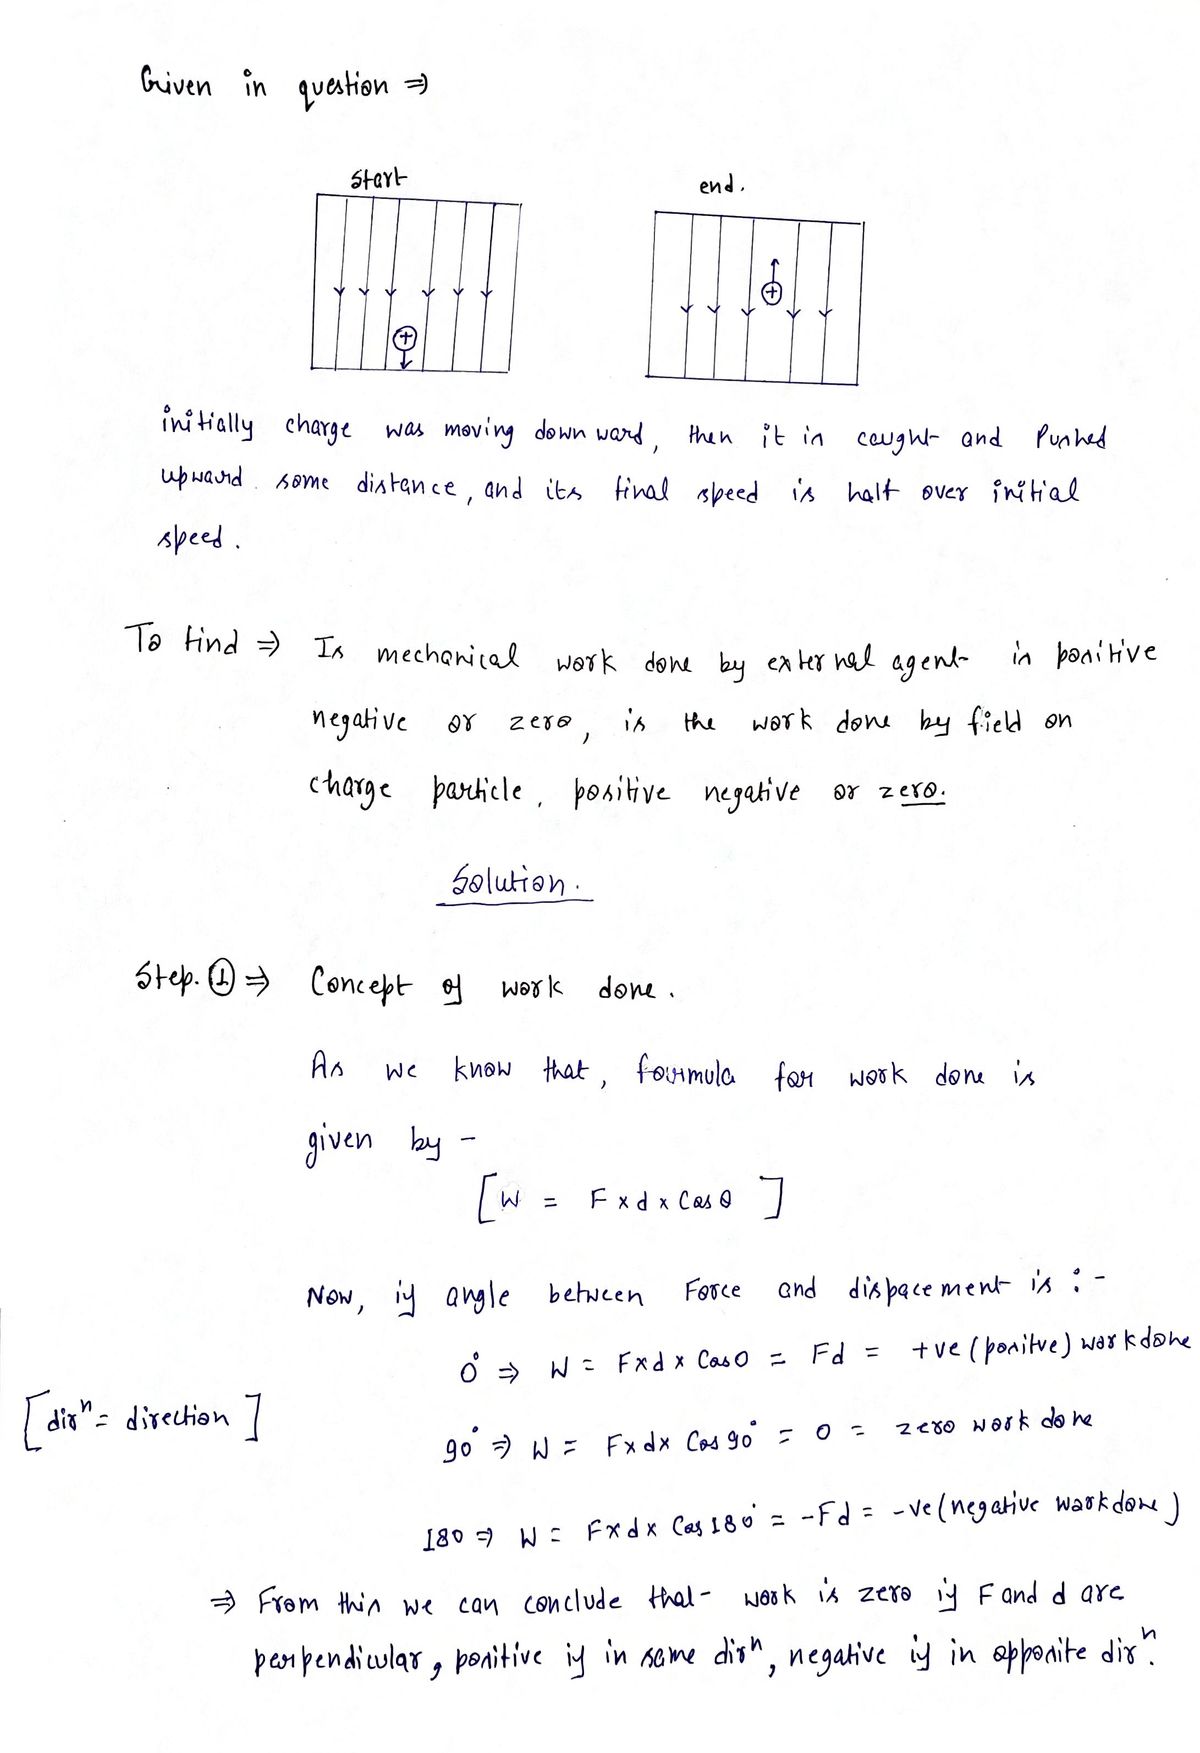 Given in question ⇒
start
end.
initially charge was moving down ward, then it is caught and Pushed
upward some distance, and its final speed is half over initial
speed.
To find ⇒ Is mechanical work done by external agent is positive
negative or zero, is the work done by field on
charge particle, positive negative or zero.
Solution.
Step. ① ⇒ Concept of work done.
As we know that, formula for work done is
given by -
[W = F x d x Cos θ ]
Now, if angle between Force and dispacement is :-
0° ⇒ W = Fxd x Cos0 = Fd = +ve (positve) work done
[dirⁿ = direction]
90° ⇒ W = Fxdx Cos 90° = 0 = zero work done
180 ⇒ W = Fxdx Cos 180° = -Fd = -ve (negative workdone)
⇒ From this we can conclude that - work is zero if F and d are
perpendicular, positive if in same dirⁿ, negative if in opposite dirⁿ.